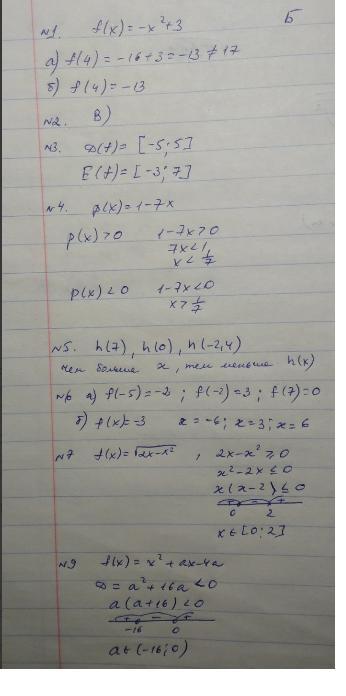 Б
№1. f(x) = -x²+3
а) f(4) = -16+3 = -13 ≠ 17
б) f(4) = -13
№2. В)
№3. D(f) = [-5; 5]
E(f) = [-3; 7]
№4. p(x) = 1-7x
p(x) > 0 1-7x > 0
7x < 1
x < 1/7
p(x) < 0 1-7x < 0
x > 1/7
№5. h(7), h(0), h(-2,4)
чем больше x, тем меньше h(x)
№6 а) f(-5) = -2 ; f(-2) = 3 ; f(7) = 0
б) f(x) = -3 x = -6 ; x = 3 ; x = 6
№7 f(x) = √(2x-x²) , 2x-x² ≥ 0
x²-2x ≤ 0
x(x-2) ≤ 0
+ - +
0 2
x ∈ [0; 2]
№9 f(x) = x² + ax - 4a
D = a² + 16a < 0
a(a+16) < 0
+ - +
-16 0
a ∈ (-16; 0)